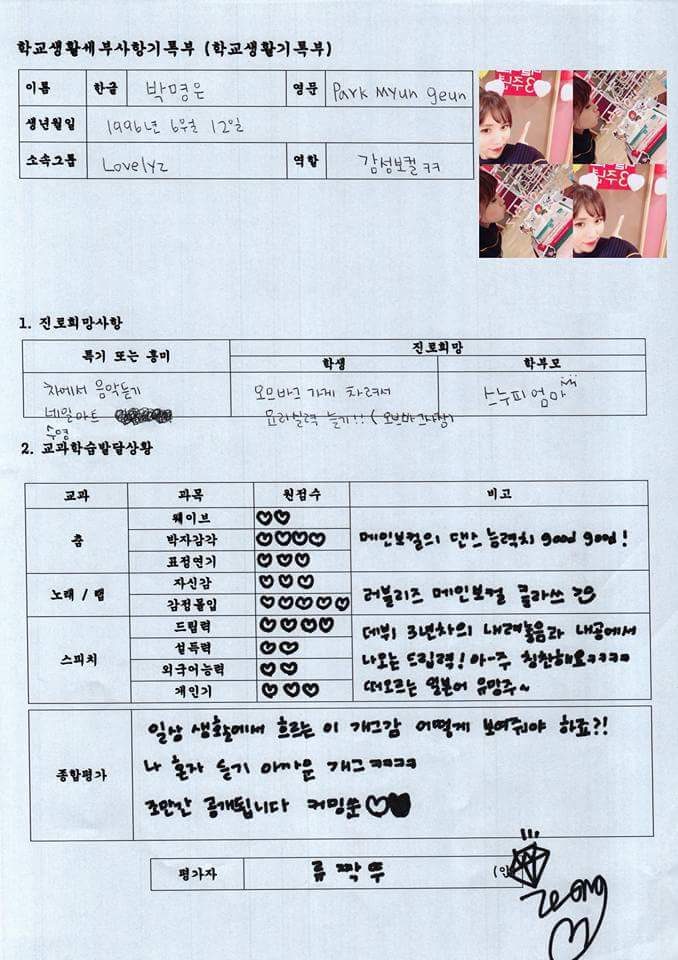 학교생활세부사항기록부 (학교생활기록부)
이름 한글 박명은 영문 Park Myun geun
생년월일 1996년 6월 12일
소속그룹 Lovelyz 역할 감성보컬ㅋㅋ
3주년
3주년
1. 진로희망사항
특기 또는 흥미 진로희망
학생 학부모
차에서 음악듣기 오므바크 가게 차려서 스누피엄마
네일아트 요리실력 늘기!! (오브바크사장)
수영
2. 교과학습발달상황
교과 과목 원점수 비고
춤 웨이브 ♡♡ 메인보컬의 댄스 능력치 good good!
박자감각 ♡♡♡♡
표정연기 ♡♡♡
노래 / 랩 자신감 ♡♡♡ 러블리즈 메인보컬 클라쓰
감정몰입 ♡♡♡♡♡
스피치 드립력 ♡♡♡♡ 데뷔 3년차의 내려놓음과 내공에서
설득력 ♡♡ 나오는 드립력! 아-주 칭찬해요ㅋㅋㅋㅋ
외국어능력 ♡♡ 떠오르는 일본어 유망주~
개인기 ♡♡♡
종합평가 일상 생활에서 흐르는 이 개그감 어떻게 보여줘야 하죠?!
나 혼자 듣기 아까운 개그ㅋㅋㅋㅋ
조만간 공개됩니다 커밍쑨♡♥
평가자 류짝뚜 (인